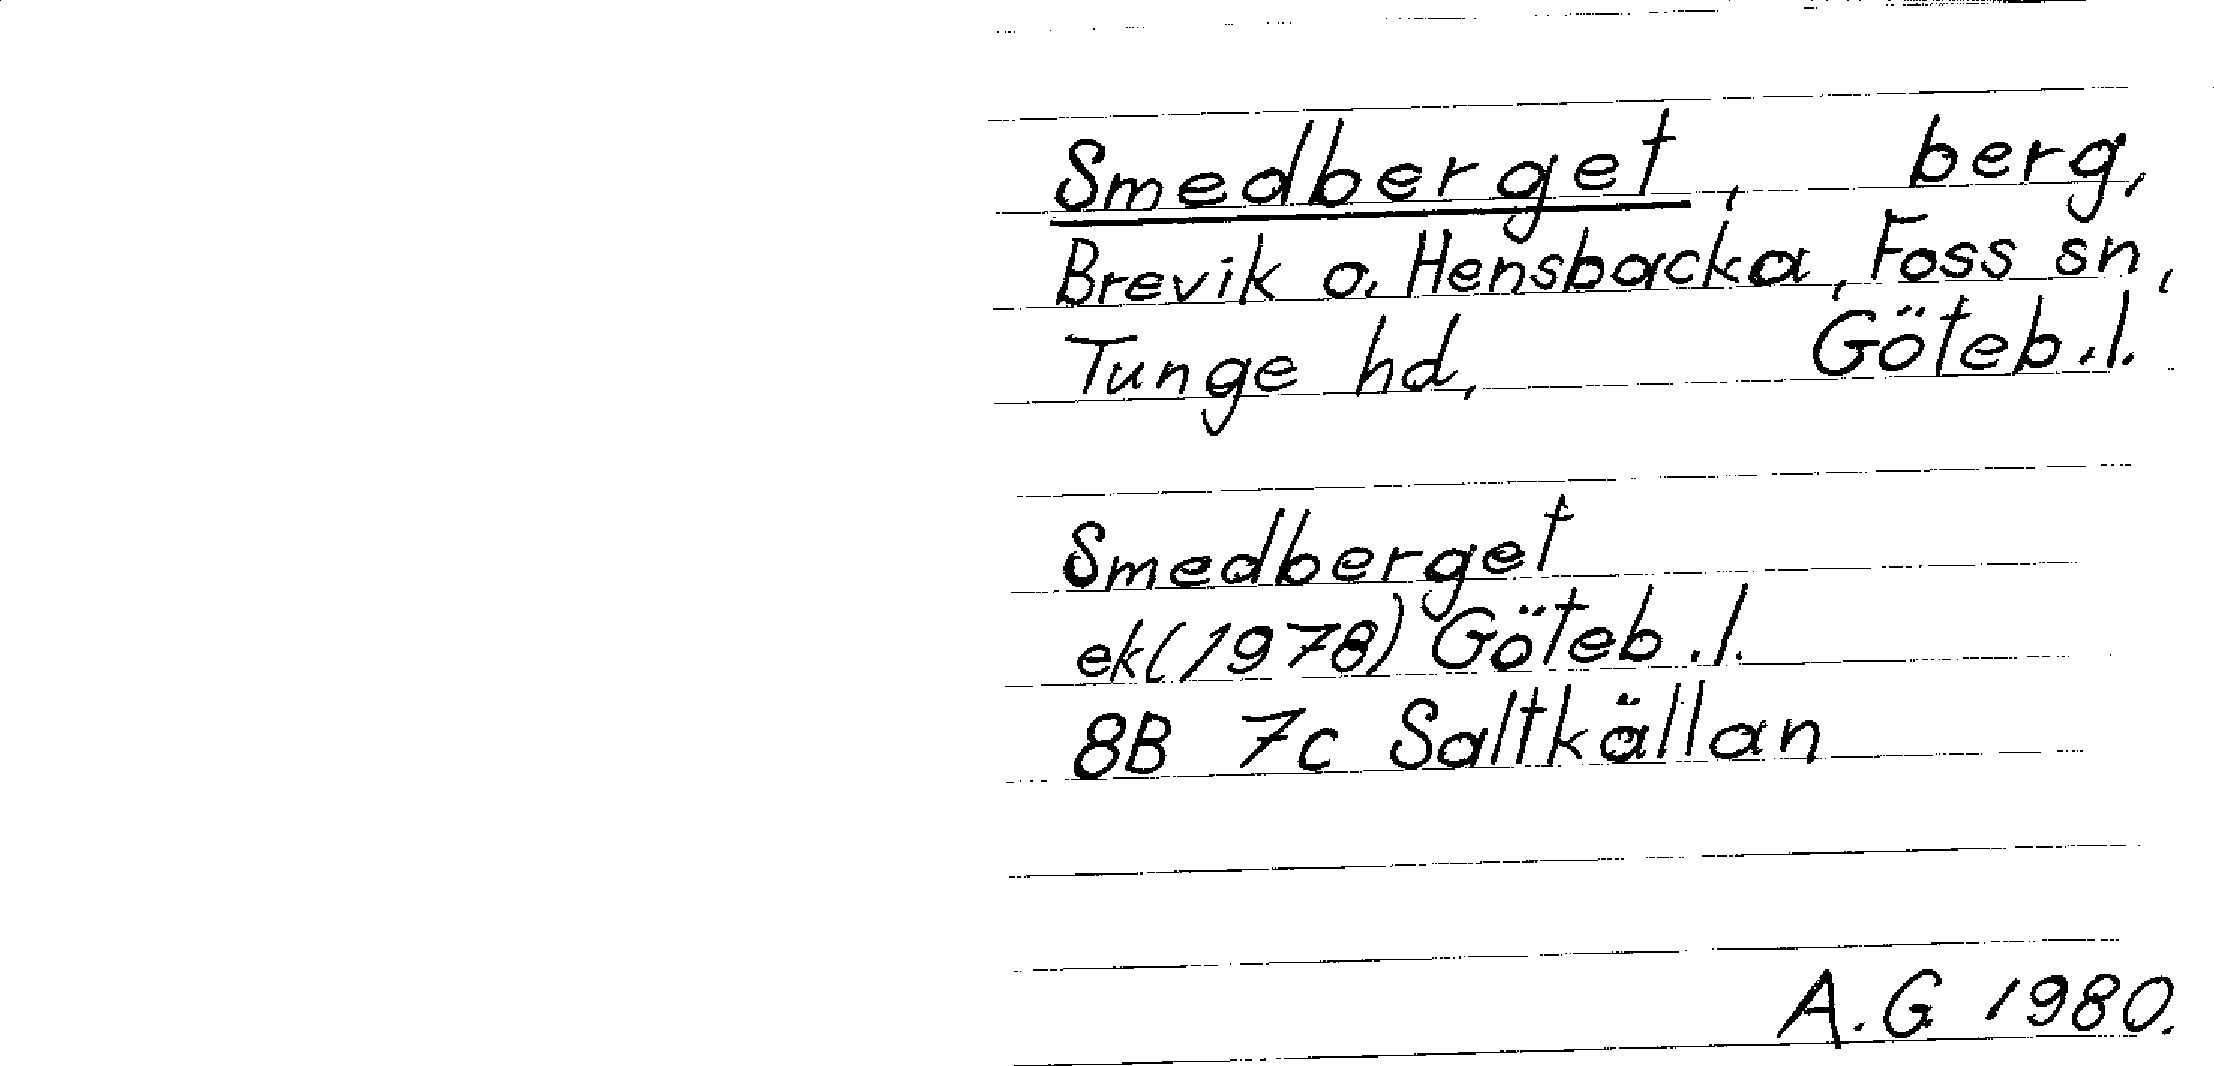 Smedberget, berg,
Brevik o. Hensbacka, Foss sn,
Tunge hd, Göteb.l.
Smedberget
ek(1978) Göteb.l.
8B 7c Saltkällan
A.G 1980.